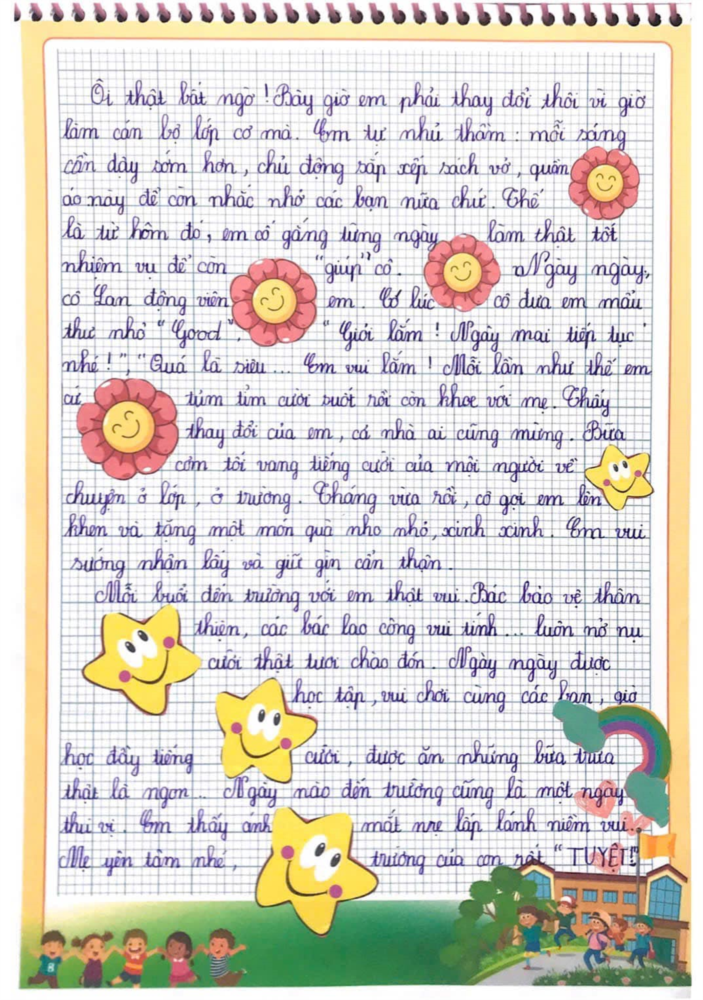 Ôi thật bất ngờ ! Bây giờ em phải thay đổi thôi vì giờ
làm cán bộ lớp cơ mà. Em tự nhủ thầm : mỗi sáng
cần dậy sớm hơn, chủ động sắp xếp sách vở, quần
áo này để còn nhắc nhở các bạn nữa chứ. Thế
là từ hôm đó, em cố gắng từng ngày làm thật tốt
nhiệm vụ để còn "giúp" cô. Ngày ngày,
cô Lan động viên em. Có lúc cô đưa em mẩu
thư nhỏ "Good", "Giỏi lắm ! Ngày mai tiếp tục
nhé !", "Quá là siêu ... Em vui lắm ! Mỗi lần như thế em
cứ tủm tỉm cười suốt rồi còn khoe với mẹ. Thấy
thay đổi của em, cả nhà ai cũng mừng. Bữa
cơm tối vang tiếng cười của mọi người về
chuyện ở lớp, ở trường. Tháng vừa rồi, cô gọi em lên
khen và tặng một món quà nho nhỏ, xinh xinh. Em vui
sướng nhận lấy và giữ gìn cẩn thận.
Mỗi buổi đến trường với em thật vui. Bác bảo vệ thân
thiện, các bác lao công vui tính ... luôn nở nụ
cười thật tươi chào đón. Ngày ngày được
học tập, vui chơi cùng các bạn, giờ
học đầy tiếng cười, được ăn những bữa trưa
thật là ngon .. Ngày nào đến trường cũng là một ngày
thú vị. Em thấy ánh mắt mẹ lấp lánh niềm vui.
Mẹ yên tâm nhé, trường của con rất "TUYỆT!"